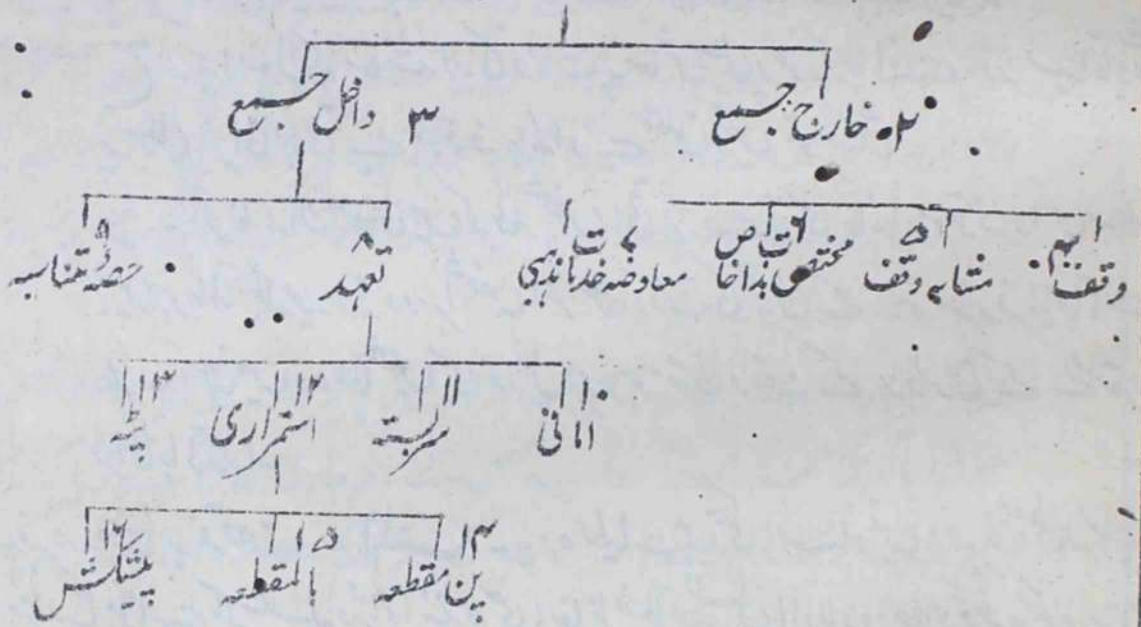 ۲ خارج جمع ۳ داخل جمع
۴ وقف ۵ مشابہ وقف ۶ مختص بذات خاص ۷ معاوضہ خدمات مذہبی ۸ تعہد ۹ حصہ متناسبہ
۱۰ امانی ۱۱ سربستہ ۱۲ استمراری ۱۳ پٹہ
۱۴ پن مقطعہ ۱۵ بالمقطعہ ۱۶ پیشکش